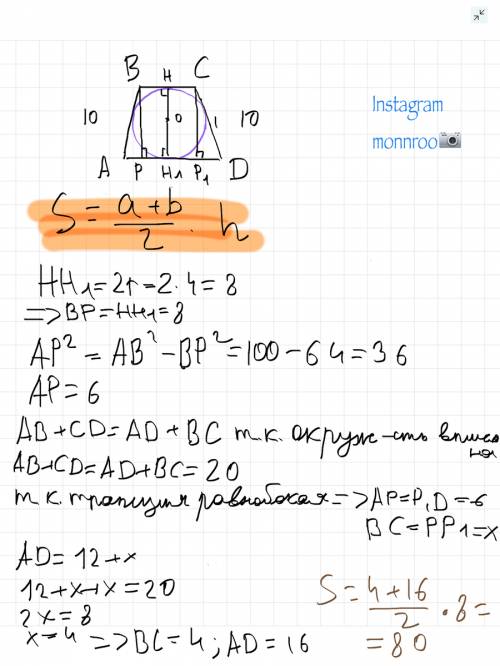 B H C
10 O 10
A P H₁ P₁ D
Instagram
monnroo
S = a+b/2 · h
HH₁=2r=2·4=8
=>BP=HH₁=8
AP²=AB²-BP²=100-64=36
AP=6
AB+CD=AD+BC т.к. окруж-сть вписа
на
AB+CD=AD+BC=20
т.к. трапеция равнобокая=>AP=P₁D=6
BC=PP₁=x
AD=12+x
12+x+x=20
2x=8
x=4 =>BC=4; AD=16
S=4+16/2·8=
=80